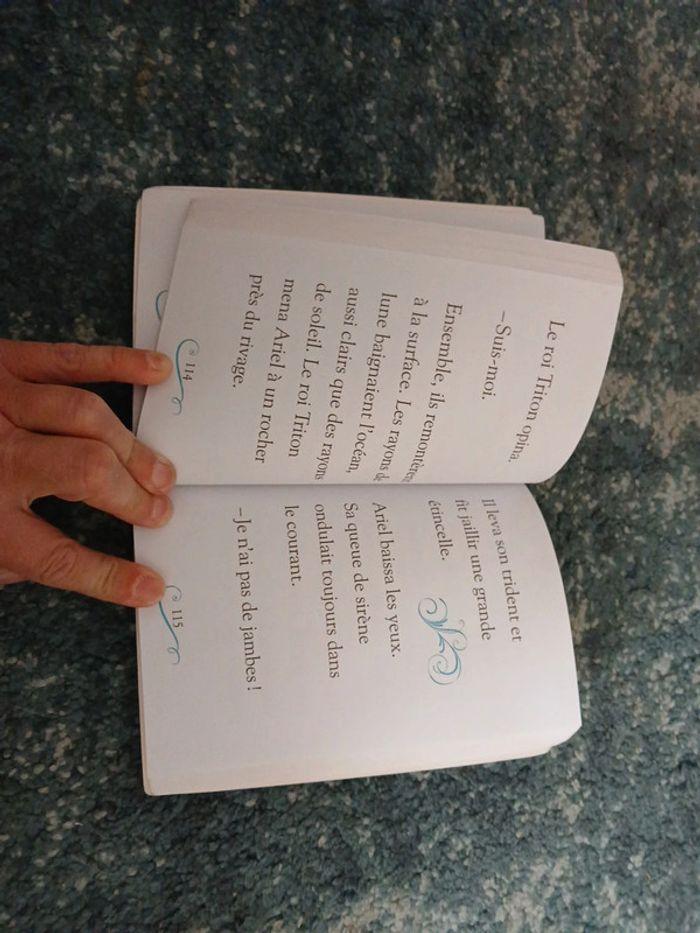 Le roi Triton opina.
–Suis-moi.
Ensemble, ils remontèrent
à la surface. Les rayons de
lune baignaient l'océan,
aussi clairs que des rayons
de soleil. Le roi Triton
mena Ariel à un rocher
près du rivage.
114
Il leva son trident et
fit jaillir une grande
étincelle.
Ariel baissa les yeux.
Sa queue de sirène
ondulait toujours dans
le courant.
–Je n'ai pas de jambes !
115